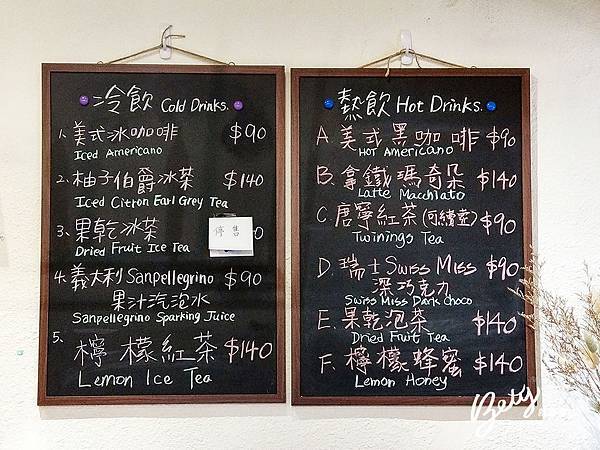 冷飲 Cold Drinks.
1. 美式冰咖啡 $90
Iced Americano
2. 柚子伯爵冰茶 $140
Iced Citron Earl Grey Tea
3. 果乾冰茶 停售
Dried Fruit Ice Tea
4. 義大利 Sanpellegrino $90
果汁汽泡水
Sanpellegrino Sparking Juice
5. 檸檬紅茶 $140
Lemon Ice Tea
熱飲 Hot Drinks.
A. 美式黑咖啡 $90
Hot Americano
B. 拿鐵瑪奇朵 $140
Latte Macchiato
C. 唐寧紅茶(可續壺) $90
Twinings Tea
D. 瑞士 Swiss Miss $90
深巧克力
Swiss Miss Dark Choco
E. 果乾泡茶 $140
Dried Fruit Tea
F. 檸檬蜂蜜 $140
Lemon Honey
Bety